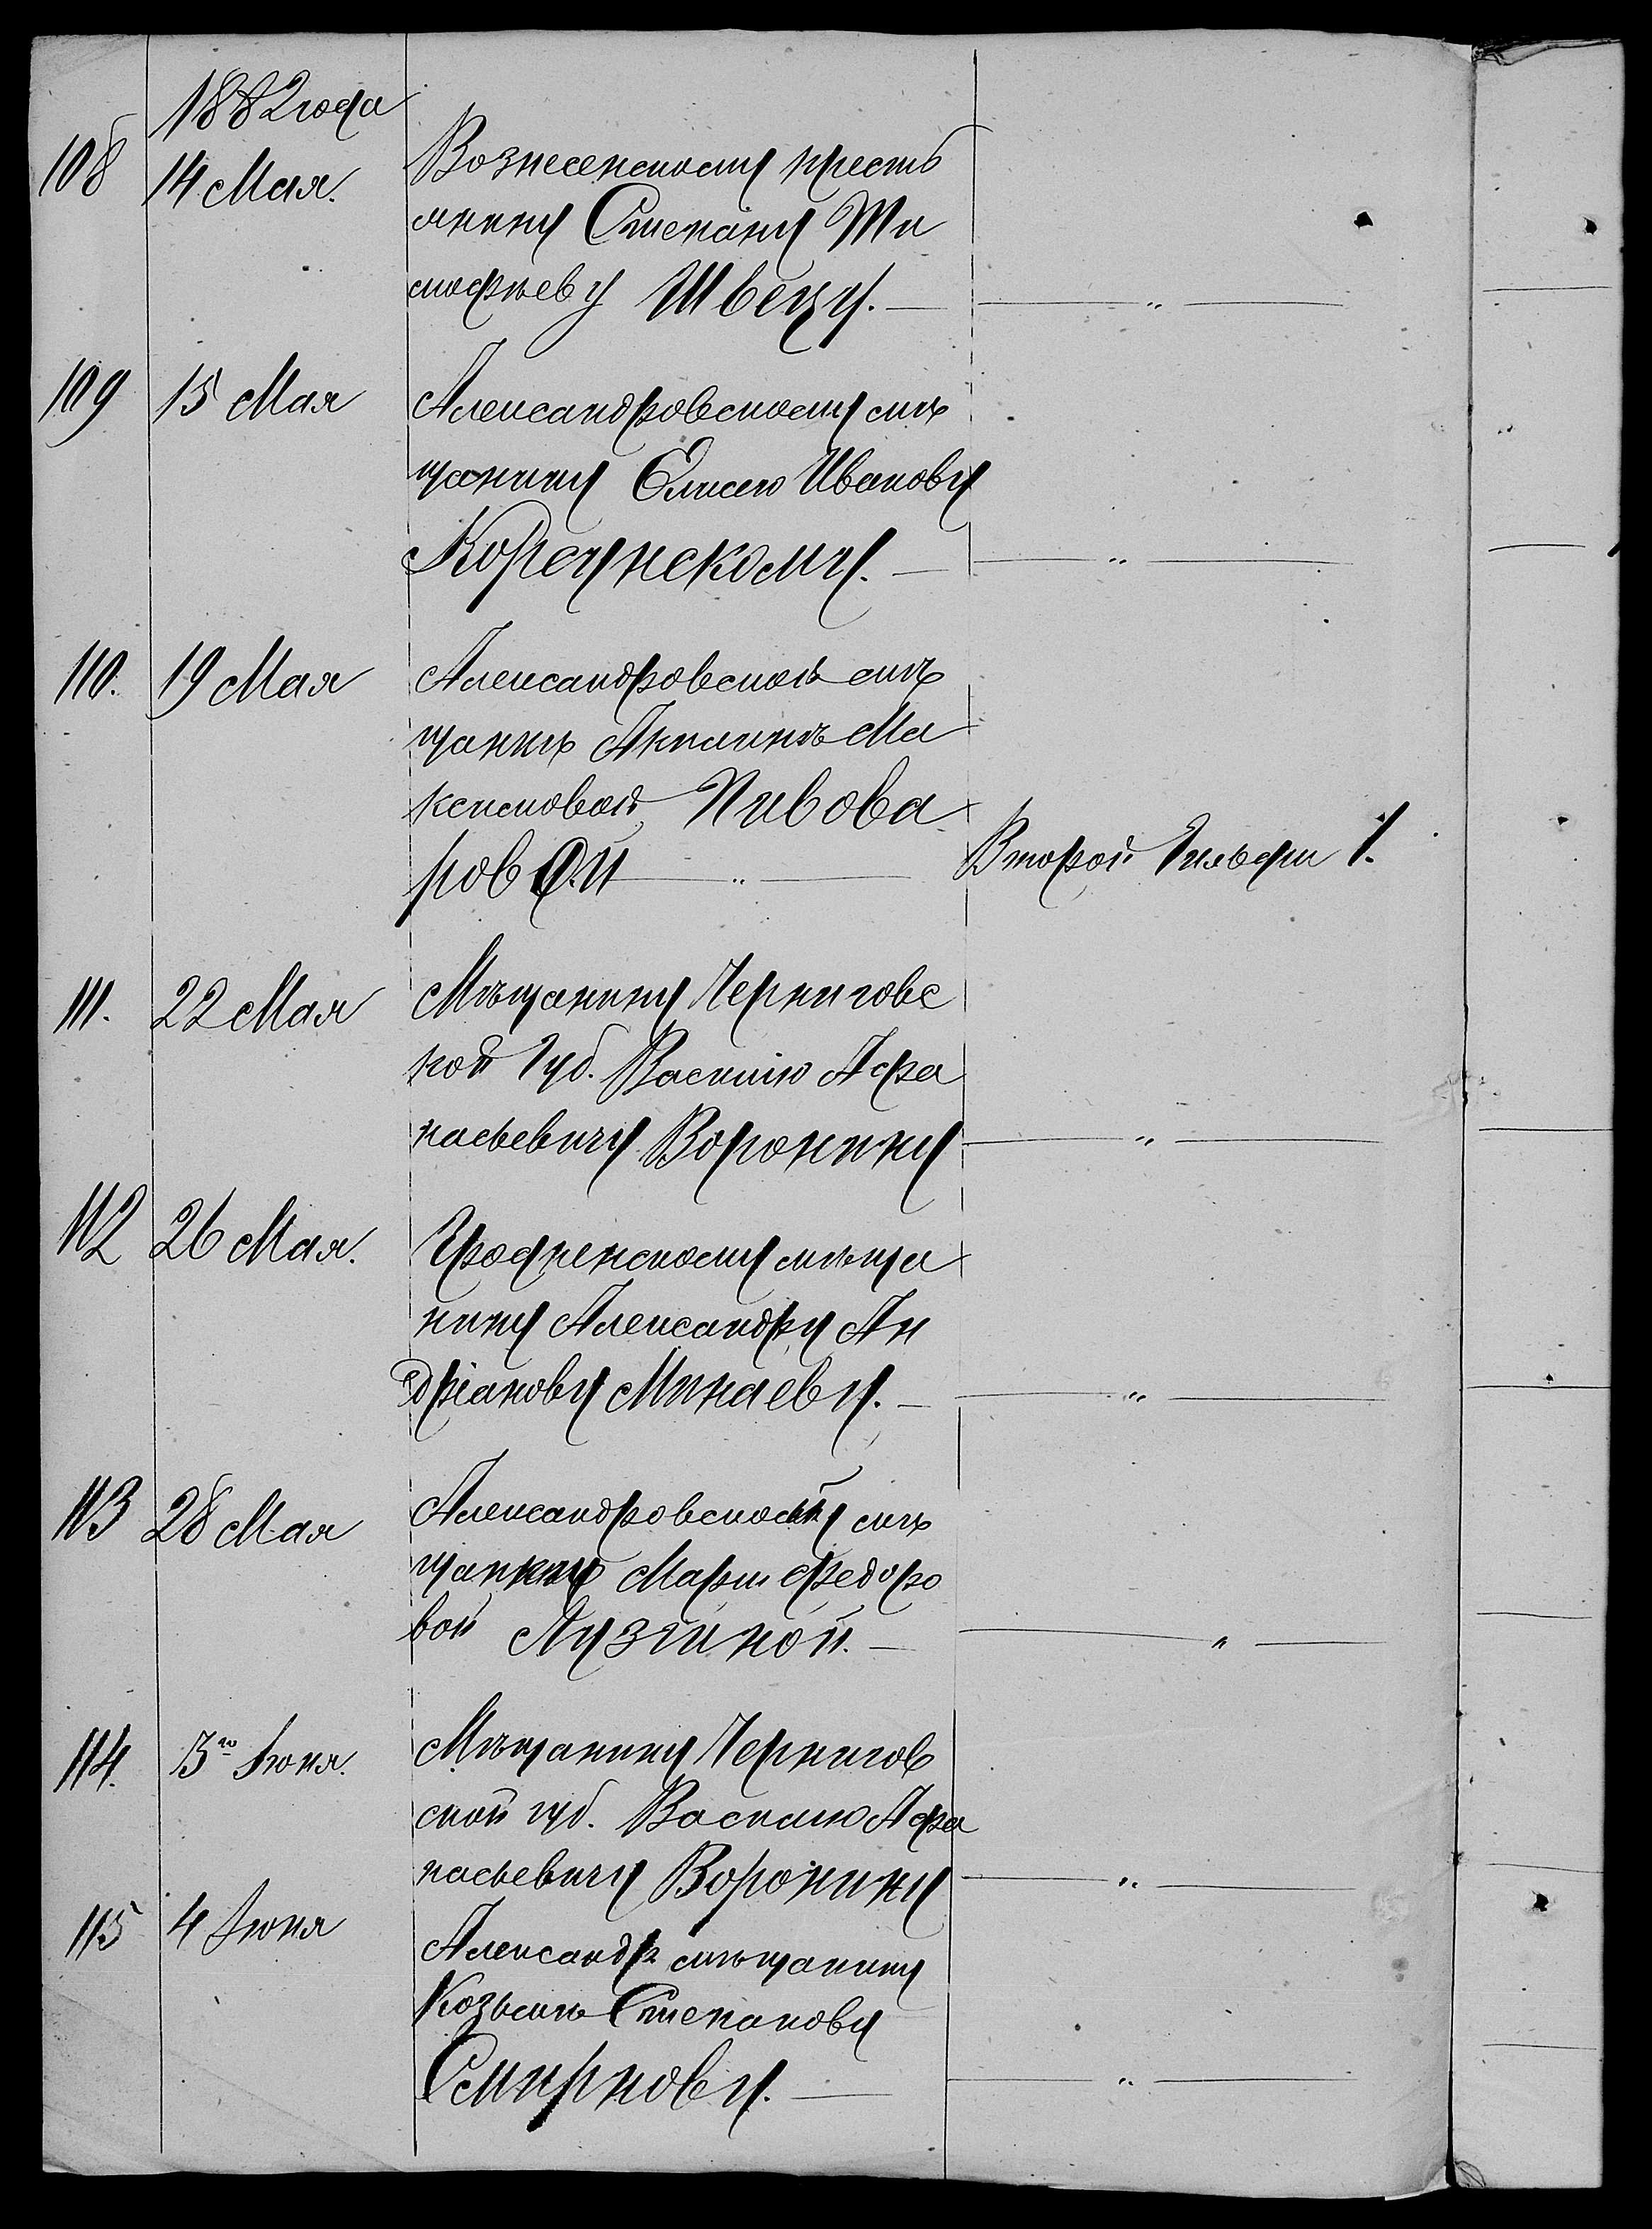 1882 года
108 14 Мая. Вознесенскому кресть
янину Степану Ти
мофѣеву Швецу. — — " —
109 15 Мая Александровскому мѣ
щанину Елисею Иванову
Корсунскому. — — " —
110. 19 Мая Александровской мѣ
щанкѣ Акилинѣ Ма
ксимовой Пивова
ровой — " — Второй Гильдіи 1.
111. 22 Мая Мѣщанину Черниговс
кой Губ. Василію Афа
насьевичу Воронину — " —
112 26 Мая. Гродненскому мѣща
нину Александру Ан
дріанову Минаеву. — — " —
113 28 Мая Александровской мѣ
щанкѣ Маріи Федоро
вой Лузгиной. — — " —
114. 3го Іюня. Мѣщанину Чернигов
ской губ. Василію Афа
насьевичу Воронину — " —
115 4 Іюня Александр мѣщанину
Козьмѣ Степанову
Смирнову. — — " —